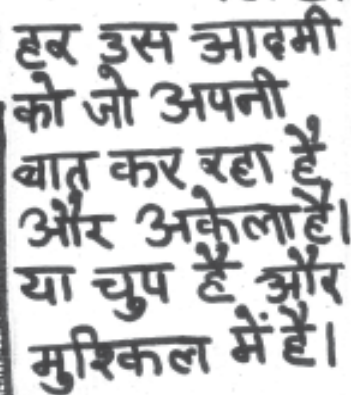 हर उस आदमी
को जो अपनी
बात कर रहा है
और अकेला है।
या चुप है और
मुश्किल में है।